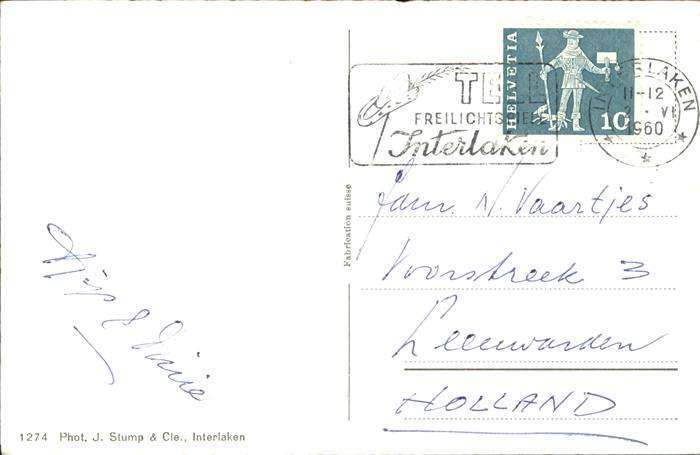 HELVETIA
10
TELL
FREILICHTSPIELE
Interlaken
INTERLAKEN
11-12
VI
1960
Fabrication suisse
Fam. N. Vaartjes
Voorstreek 3
Leeuwarden
HOLLAND
&
1274 Phot. J. Stump & Cie., Interlaken